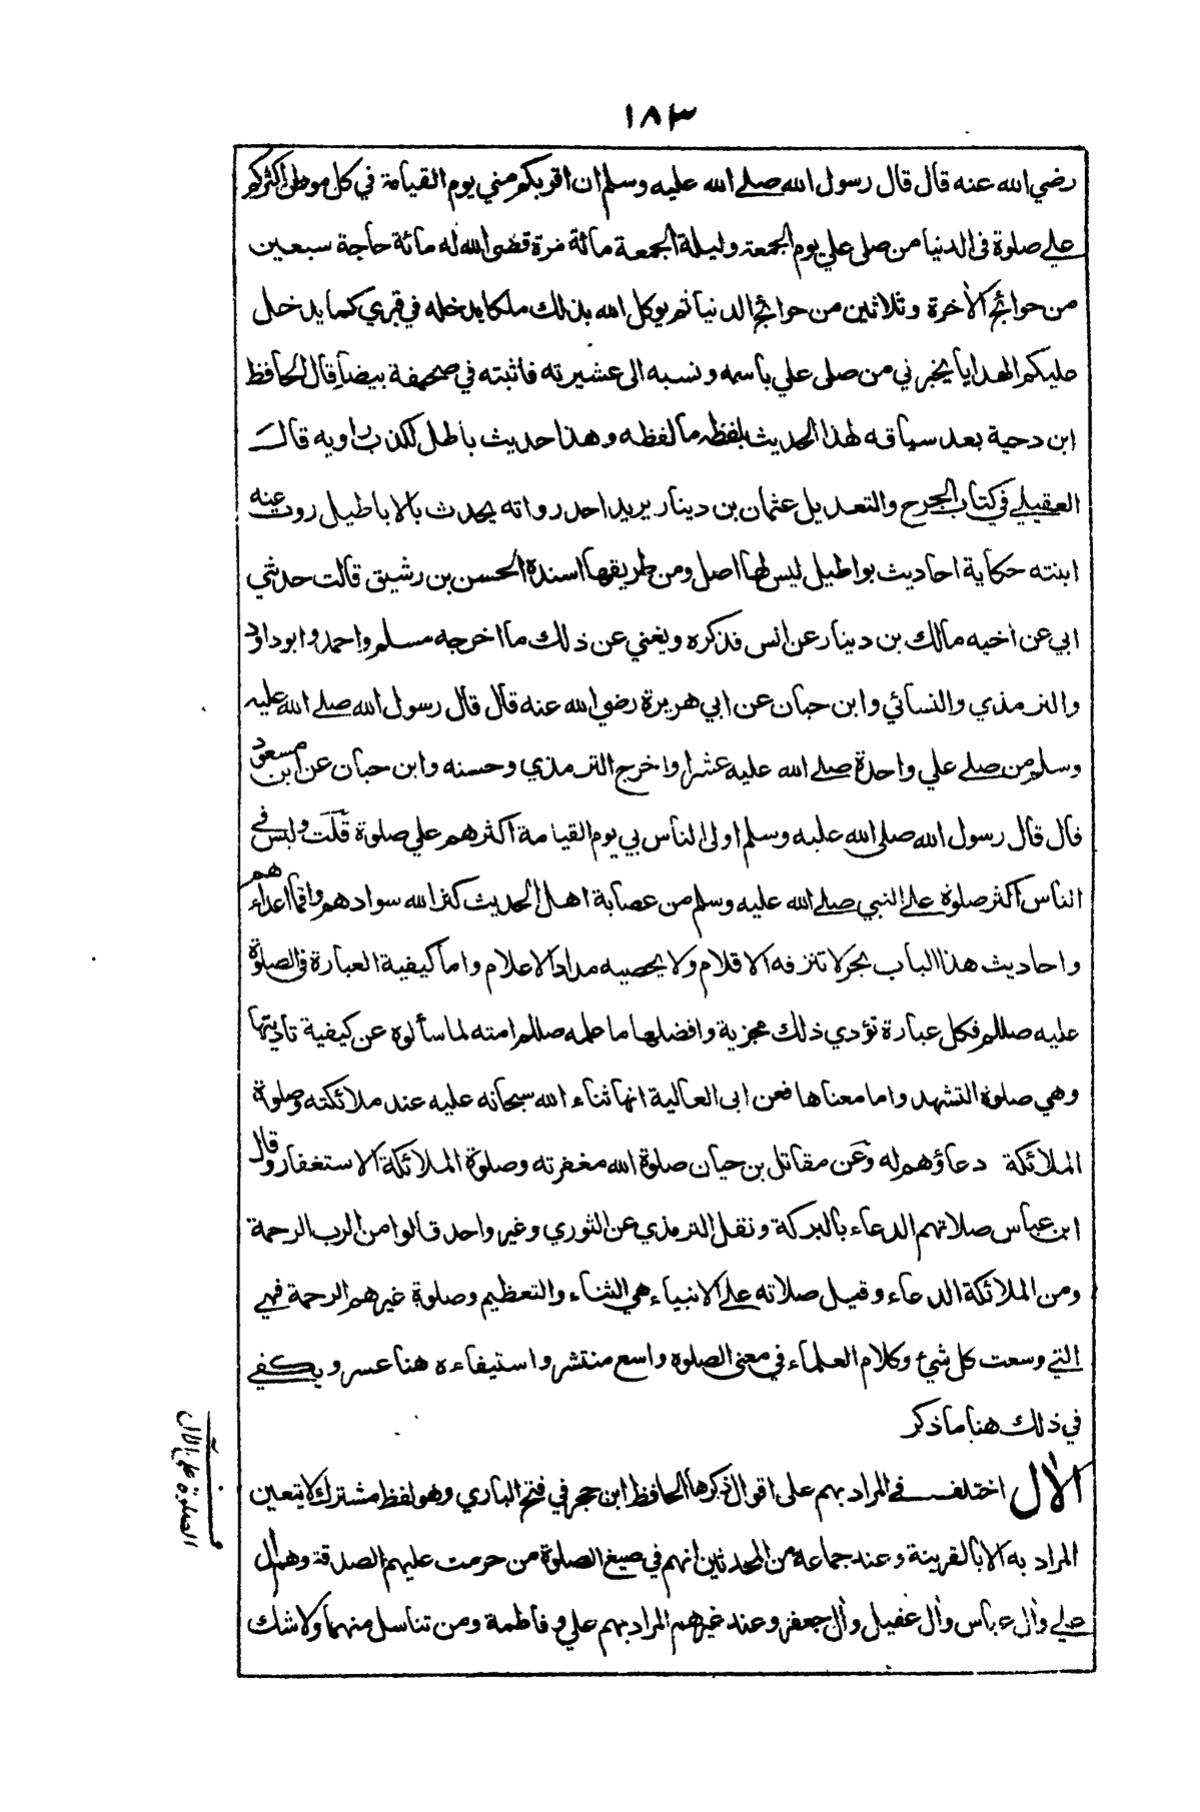 ١٨٣
رضي الله عنه قال قال رسول الله صلى الله عليه وسلم ان اقربكم مني يوم القيامة في كل موطن اكثركم
علي صلوة فى الدنيا من صلى علي يوم الجمعة وليلة الجمعة مائة مرة قضى الله له مائة حاجة سبعين
من حوائج الاخرة وثلاثين من حوائج الدنيا ثم يوكل الله بذلك ملكا يدخله في قبري كما يدخل
عليكم الهدايا يخبرني من صلى علي باسمه ونسبه الى عشيرته فاثبته في صحيفة بيضاء قال الحافظ
ابن دحية بعد سياقه لهذا الحديث بلفظه ما لفظه وهذا حديث باطل لكذب راويه قال
العقيلي في كتاب الجرح والتعديل عثمان بن دينار يريد احد رواته يحدث بالاباطيل روت عنه
ابنته حكاية احاديث بواطيل ليس لها اصل ومن طريقها اسنده الحسن بن رشيق قالت حدثني
ابي عن اخيه مالك بن دينار عن انس فذكره ويغني عن ذلك ما اخرجه مسلم واحمد وابو داود
والترمذي والنسائي وابن حبان عن ابي هريرة رضي الله عنه قال قال رسول الله صلى الله عليه
وسلم من صلى علي واحدة صلى الله عليه عشرا واخرج الترمذي وحسنه وابن حبان عن ابن مسعود
قال قال رسول الله صلى الله عليه وسلم اولى الناس بي يوم القيامة اكثرهم علي صلوة قلت وليس في
الناس اكثر صلوة على النبي صلى الله عليه وسلم من عصابة اهل الحديث كثر الله سوادهم واقما اعداءهم
واحاديث هذا الباب بحر لا تنزفه الاقلام ولا يحصيه مداد الاعلام واما كيفية العبارة في الصلوة
عليه صللم فكل عبارة تؤدي ذلك مجزية وافضلها ما علمه صللم امته لما سألوه عن كيفية تاديتها
وهي صلوة التشهد واما معناها فعن ابى العالية انها ثناء الله سبحانه عليه عند ملائكته وصلوة
الملائكة دعاؤهم له وعن مقاتل بن حيان صلوة الله مغفرته وصلوة الملائكة الاستغفار وقال
ابن عباس صلاتهم الدعاء بالبركة ونقل الترمذي عن الثوري وغير واحد قالوا من الرب الرحمة
ومن الملائكة الدعاء وقيل صلاته على الانبياء هي الثناء والتعظيم وصلوة غيرهم الرحمة فهي
التي وسعت كل شيء وكلام العلماء في معنى الصلوة واسع منتشر واستيفاءه هنا عسر ويكفي
في ذلك هنا ما ذكر
الآل اختلف في المراد بهم على اقوال ذكرها الحافظ ابن حجر في فتح الباري وهو لفظ مشترك لا يتعين
المراد به الا بالقرينة وعند جماعة من المحدثين انهم في صيغ الصلوة من حرمت عليهم الصدقة وهم آل
علي وآل عباس وآل عقيل وآل جعفر وعند غيرهم المراد بهم علي وفاطمة ومن تناسل منهما ولا شك
الصلوة على الآل